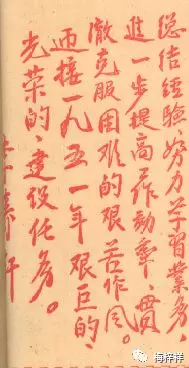 总结经验、努力学习業务，
进一步提高工作効率，貫
澈克服困难的艰苦作风。
迊接一九五一年艰巨的、
光荣的、建设任务。
梅梓祥